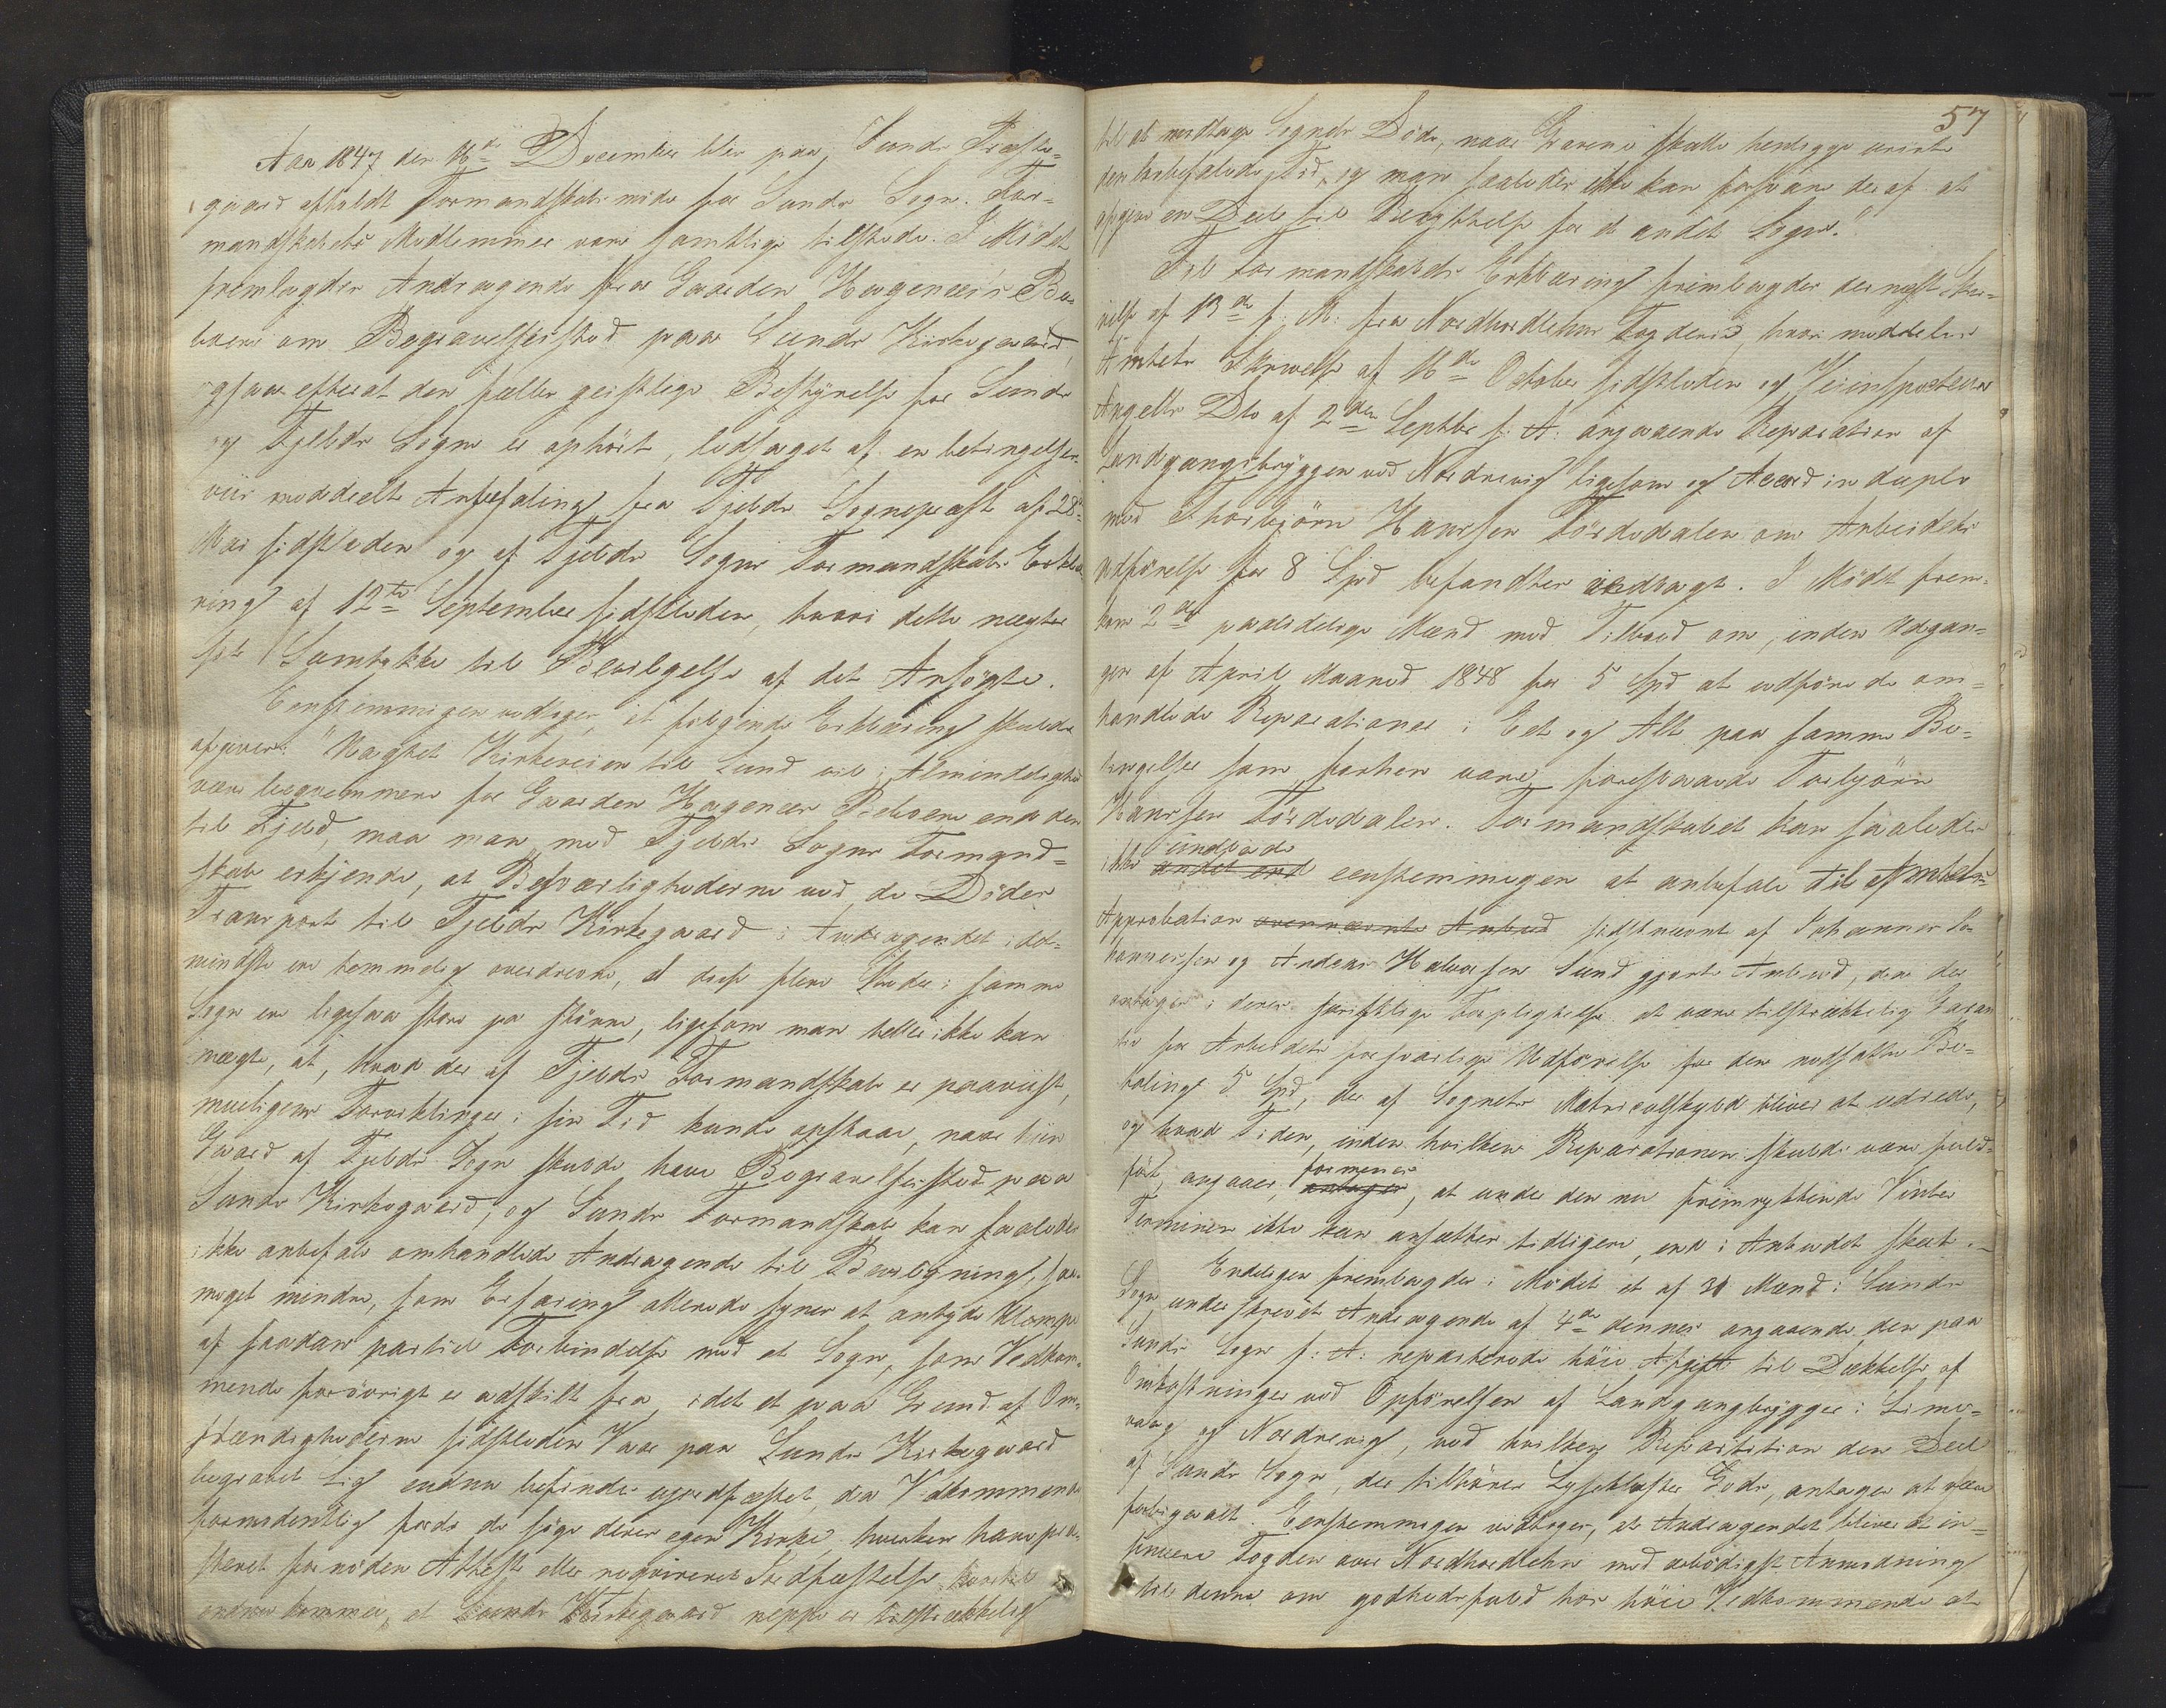 Aar 1847 den 16de December blev paa Sunds Præste-
gaard afholdt Formandskabsmøde for Sunds Sogn. For-
mandskabets Medlemmer vare samtlige tilstede. I Mødet
fremlagdes Andragende fra Gaarden Hagenæs's Be-
boere om Begravelsessted paa Sunds Kirkegaard,
ogsaa efterat den fælles geistlige Bestyrelse for Sunds
og Fjelds Sogne er ophørt, ledsaget af en betingelses-
viis meddeelt Anbefaling fra Fjelds Sognepræst af 28de
Mai sidstleden og af Fjelds Sogns Formandskabs Erklæ-
ring af 12te September sidstleden, hvori dette nægter
sit Samtykke til Bevilgelse af det Ansøgte.
Eenstemmigen vedtoges, at følgende Erklæring skulde
afgives: "Uagtet Kirkeveien til Sund vil i Almindelighed
være beqvemmere for Gaarden Hagenæs Beboere end den
til Fjeld, maa man med Fjelds Sogns Formand-
skab erkjende, at Besværlighederne ved de Dødes
Transport til Fjelds Kirkegaard i Andragendet idet-
mindste ere temmelig overdrevne, at disse flere Steder i samme
Sogn ere ligesaa store ja større, ligesom man heller ikke kan
nægte, at, hvad der af Fjelds Formandskab er paaviist,
mueligens Forviklinger i sin Tid kunde opstaae, naar hiin
Gaard af Fjelds Sogn skulde have Begravelsessted paa
Sunds Kirkegaard, og Sunds Formandskab kan saaledes
ikke anbefale omhandlede Andragende til Bevilgning, saa-
meget mindre, som Erfaring allerede synes at antyde Ulempe
af saadan partiel Forbindelse med et Sogn, som Vedkom-
mende forøvrigt er adskilt fra, idet et paa Grund af Om-
stændighederne sidstleden Vaar paa Sunds Kirkegaard
begravet Lig endnu befindes ujordfæstet, da Vedkommende
formodentlig fordi de søge deres egen Kirke, hverken have præ-
steret fornøden Attest eller reqvireret Jordfæstelse, hvortil
endnu kommer, at Sunds Kirkegaard neppe er tilstrækkelig
57
til at modtage Sognets Døde, naar Gravene skulle henligge urørte
den anbefalede Tid, og man saaledes ikke kan forsvare deraf at
afgive en Deel til Benyttelse for et andet Sogn."
Til Formandskabets Erklæring fremlagdes dernæst Skri-
velse af 13de f. M. fra Nordhordlehns Fogderie, hvori meddeles
Amtets Skrivelse af 16de October sidstleden og Veiinspecteur
Angells Dto af 2den Septbr s. A. angaaende Reparation af
Landgangsbryggen ved Nordrevig ligesom og Accord in duplo
med Thorbjørn Haursen Førdedalen om Arbeidets
Udførelse for 8 Spd befandtes vedlagt. I Mødet frem-
kom 2de paalidelige Mænd med Tilbud om, inden Udgan-
gen af April Maaned 1848 for 5 Spd at udføre de om-
handlede Reparationer i Eet og Alt paa samme Be-
tingelser som forhen vare foreslaaede Torbjørn
Haursen Førdedalen. Formandskabet kan saaledes
undlade
ikke andet end eenstemmigen at anbefale til Amtets
Approbation ovennævnte Anbud sidstnævnte af Johannes Jo-
hannessen og Anders Halvorsen Sund gjorte Anbud, der
antages i deres skriftlige Forpligtelse at være tilstrækkelig Garan-
tie for Arbeidets forsvarlige Udførelse for den nedsatte Be-
taling 5 Spd, der af Sognets Matriculskyld bliver at udrede,
og hvad Tiden, inden hvilken Reparationen skulde være fuld-
formenes
ført, angaaer, antages, at under den nu fremrykkende Vinter
Terminen ikke kan ansættes tidligere, end i Anbudet skeet.
Endeligen fremlagdes i Mødet et af 31 Mænd i Sunds
Sogn underskrevet Andragende af 4de dennes angaaende den paa
Sunds Sogn s: A: reparterede høie Afgift til Dækkelse af
Omkostninger ved Opførelsen af Landgangsbrygger i Lime-
vaag og Nordrevig, ved hvilken Repartition den Deel
af Sunds Sogn, der tilhører Lysekloster Gods, antages at være
forbigaaet. Eenstemmigen vedtoges, at Andragendet bliver at in-
sinuere Fogden over Nordhordlehn med ærbødigst Anmodning
til denne om godhedsfuld hos høie Vedkommende at